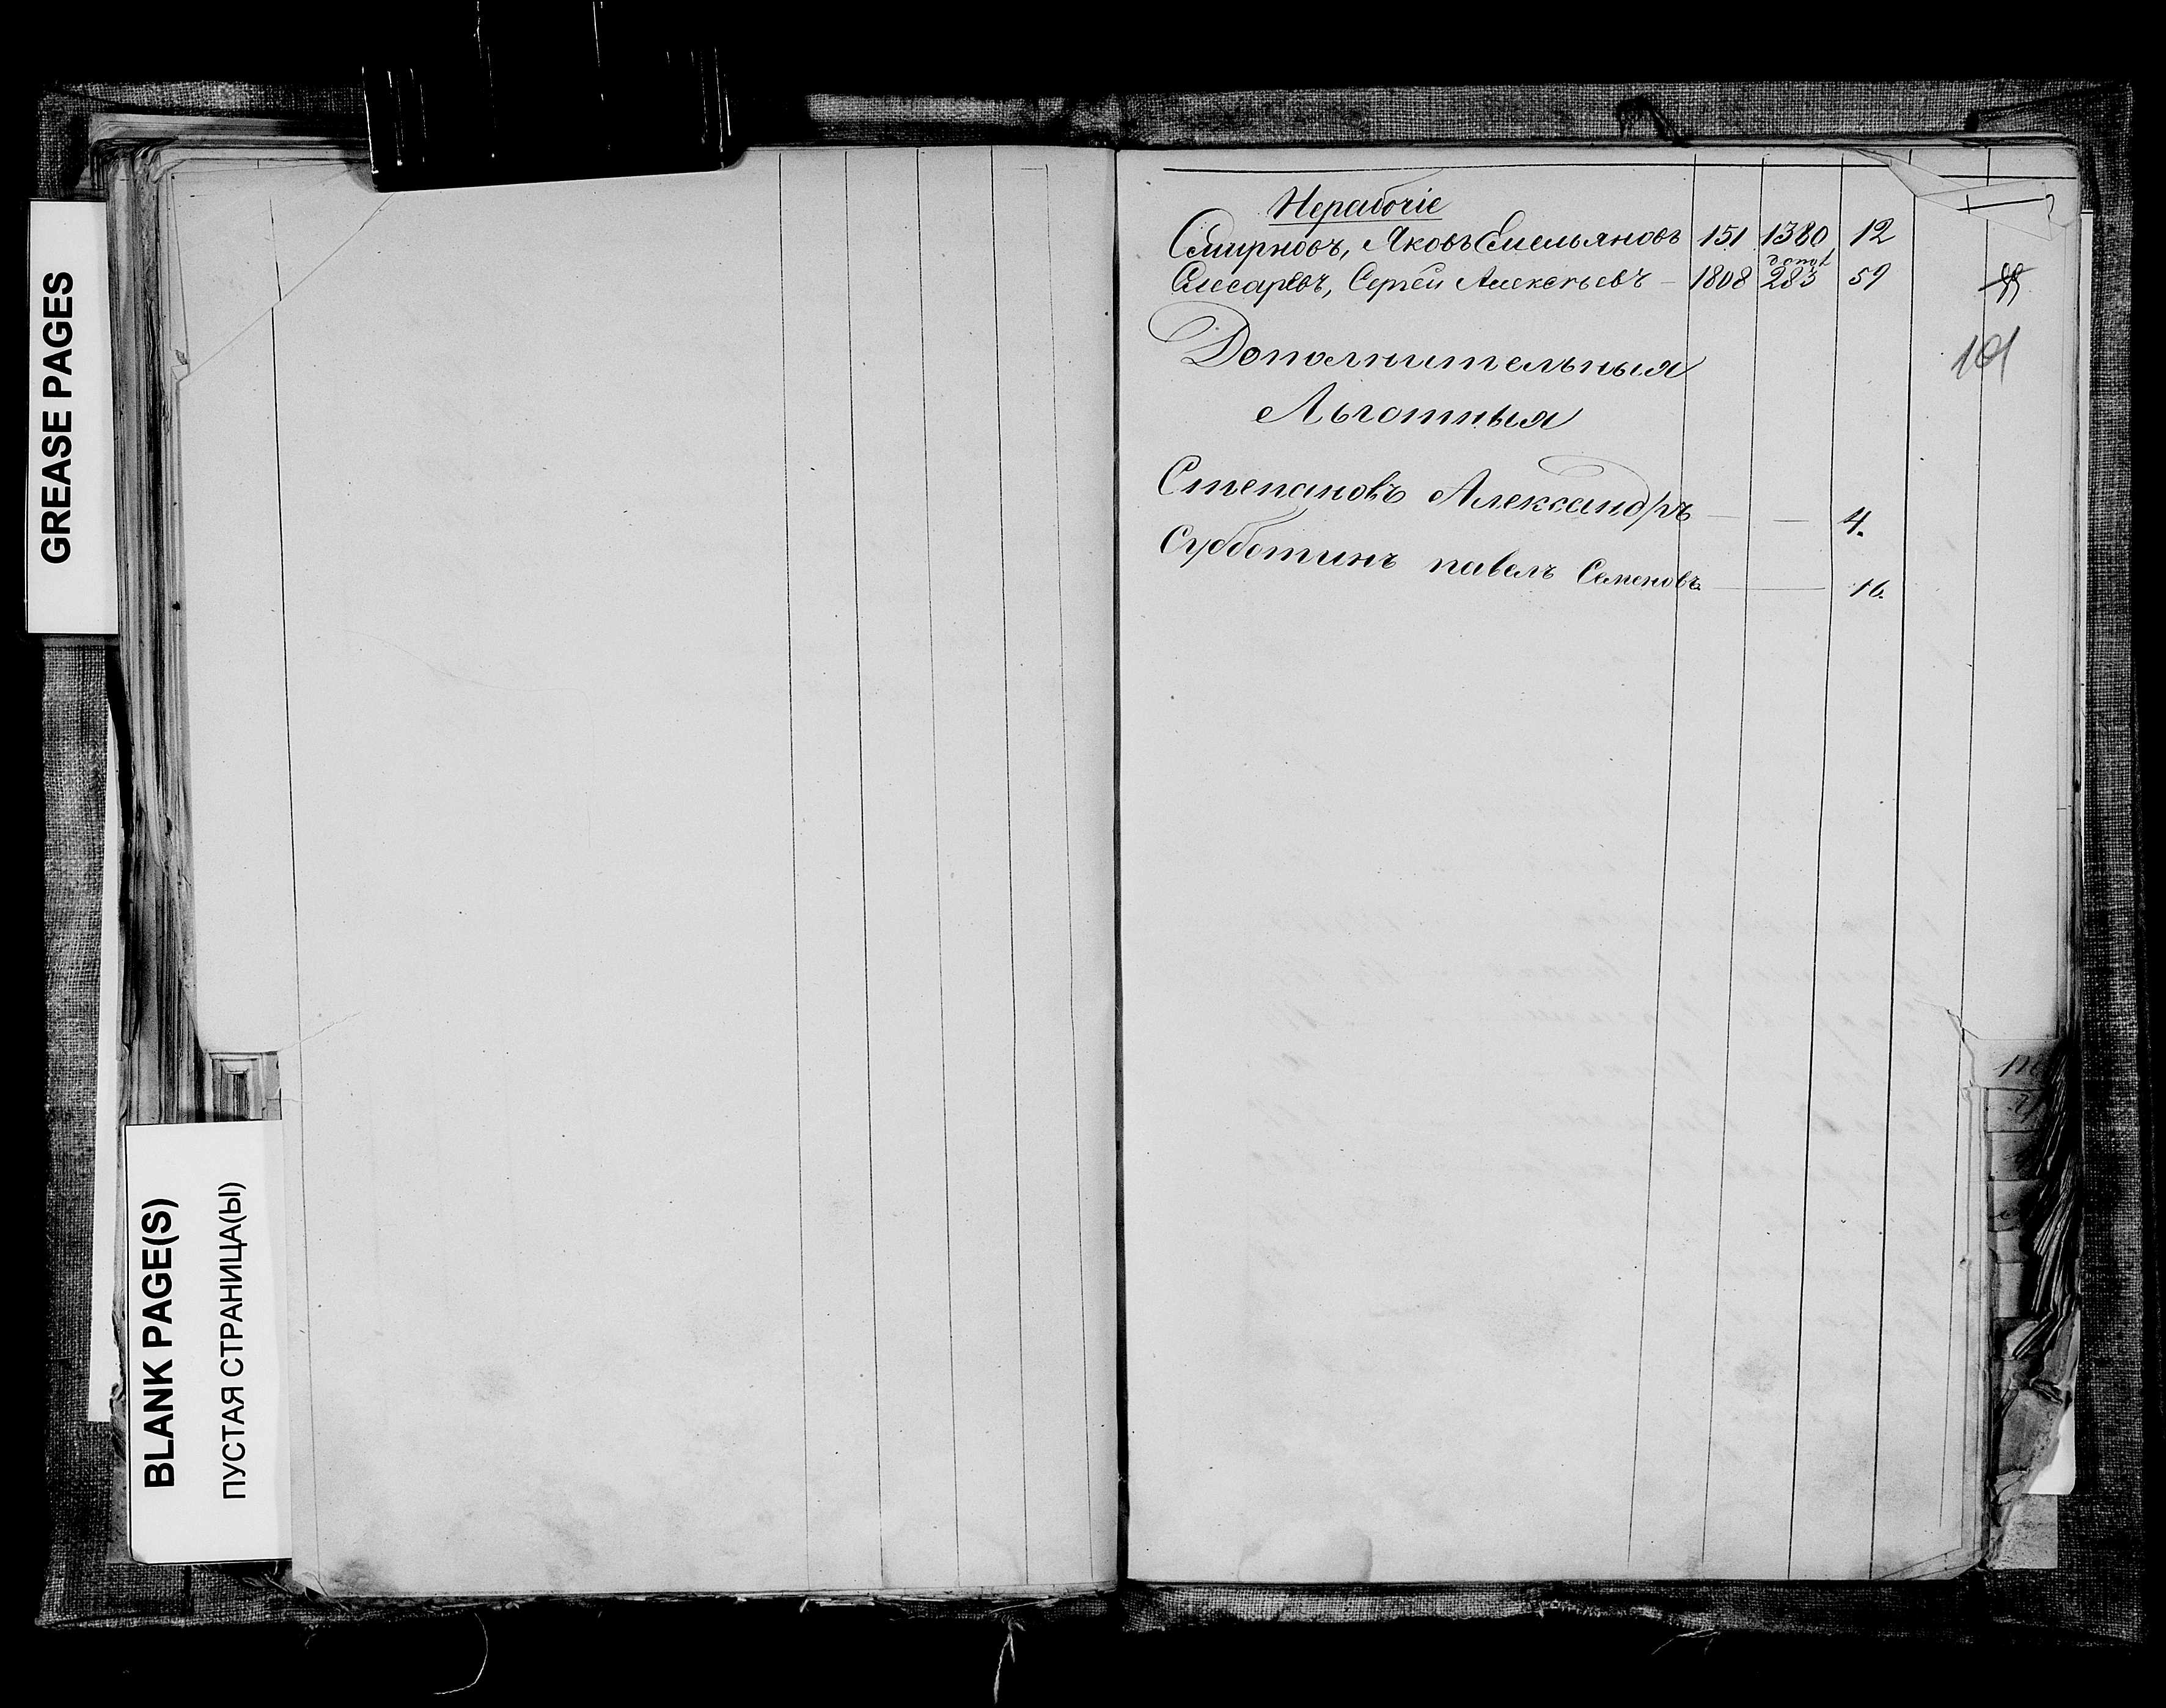 GREASE PAGES
BLANK PAGE(S)
ПУСТАЯ СТРАНИЦА(Ы)
Нерабочіе
Смирновъ, Яковъ Емельяновъ 151 1380 12
допол
Слесаревъ, Сергѣй Алексѣевъ — 1808 283 59
101
Дополнительныя
Льготныя
Степановъ Александръ — — 4.
Субботинъ павелъ Семеновъ. — 16.